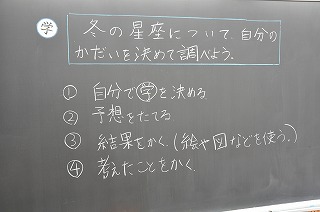 学 冬の星座について、自分の
かだいを決めて調べよう。
① 自分で学を決める
② 予想をたてる
③ 結果をかく。(絵や図などを使う。)
④ 考えたことをかく。